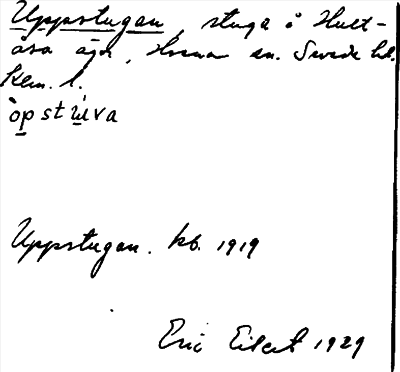 Uppstugan, stuga i Hult-
åsa ägor, Horna sn. Svede
Kem. l.
òpstu̇va
Uppstugan. kb. 1919
Eric Eilert 1929